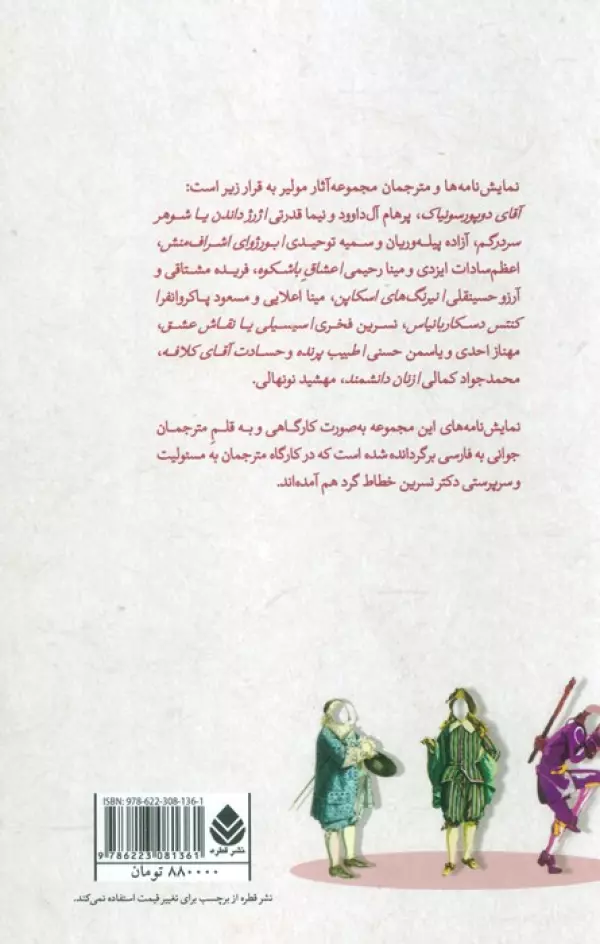 نمایش‌نامه‌ها و مترجمان مجموعه‌آثار مولیر به قرار زیر است:
آقای دوپورسونیاک، پرهام آل‌داوود و نیما قدرتی/ ژرژ داندن یا شوهر
سردرگم، آزاده پیله‌وریان و سمیه توحیدی/ بورژوای اشراف‌منش،
اعظم‌سادات ایزدی و مینا رحیمی/ عشاقِ باشکوه، فریده مشتاقی و
آرزو حسینقلی/ نیرنگ‌های اسکاپن، مینا اعلایی و مسعود پاکروانفر/
کنتس دسکاربانیاس، نسرین فخری/ سیسیلی یا نقاش عشق،
مهناز احدی و یاسمن حسنی/ طبیب پرنده و حسادت آقای کلافه،
محمدجواد کمالی/ زنان دانشمند، مهشید نونهالی.
نمایش‌نامه‌های این مجموعه به‌صورت کارگاهی و به قلمِ مترجمان
جوانی به فارسی برگردانده شده است که در کارگاه مترجمان به مسئولیت
و سرپرستی دکتر نسرین خطاط گرد هم آمده‌اند.
ISBN: 978-622-308-136-1
نشر قطره
9 786223 081361
۸۸۰۰۰۰ تومان
نشر قطره از برچسب برای تغییر قیمت استفاده نمی‌کند.